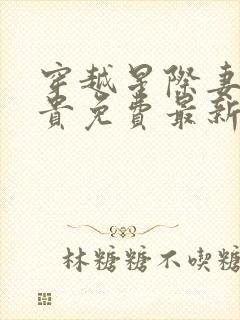 穿越星際妻
貴免費最新
林糖糖不喫糖